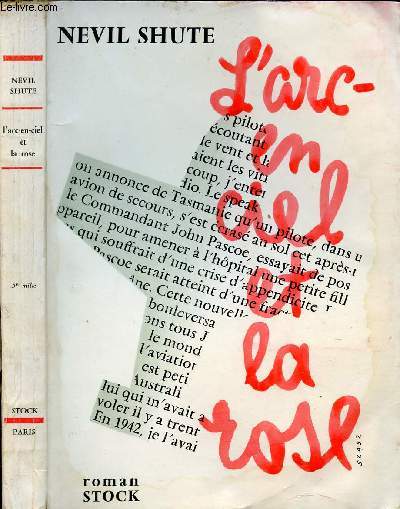 livre-rare-book.com
NEVIL SHUTE
L'arc-
en
ciel
et
la
rose
s pilot
écoutant
le vent et l
aient les vit
coup, j'enter
dio. Le speak
on annonce de Tasmanie qu'un pilote, dans u
avion de secours, s'est écrasé au sol cet après-
le Commandant John Pascoe, essayait de pos
ppareil, pour amener à l'hôpital une petite fill
qui souffrait d'une crise d'appendicite
Pascoe serait atteint d'une frac
ne. Cette nouvell
bouleversa
ons tous J
le mond
l'aviation
est peti
Australi
lui qui m'avait a
voler il y a trent
En 1942, je l'avai
roman
STOCK
NEVIL
SHUTE
l'arc-en-ciel
et
la rose
mille
STOCK
PARIS